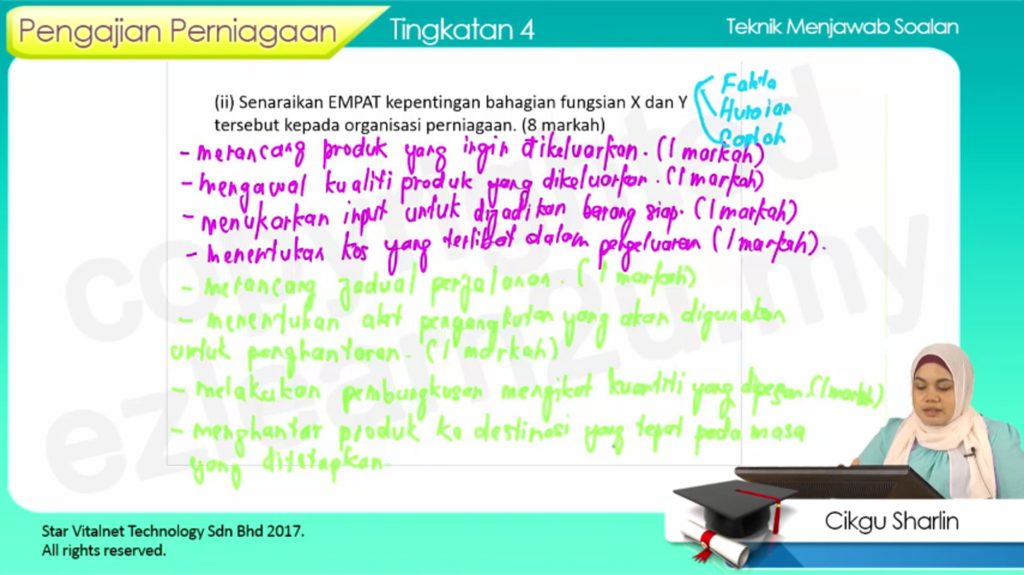 Pengajian Perniagaan
Tingkatan 4
Teknik Menjawab Soalan
(ii) Senaraikan EMPAT kepentingan bahagian fungsian X dan Y
tersebut kepada organisasi perniagaan. (8 markah)
Fakta
Huraian
Contoh
- merancang produk yang ingin dikeluarkan. (1 markah)
- mengawal kualiti produk yang dikeluarkan. (1 markah)
- menukarkan input untuk dijadikan barang siap. (1 markah)
- menentukan kos yang terlibat dalam pengeluaran (1 markah).
- merancang jadual perjalanan. (1 markah)
- menentukan alat pengangkutan yang akan digunakan
untuk penghantaran. (1 markah)
- melakukan pembungkusan mengikut kuantiti yang dipesan. (1 markah)
- menghantar produk ke destinasi yang tepat pada masa
yang ditetapkan.
copyrighted
ezlearn2u.my
Cikgu Sharlin
Star Vitalnet Technology Sdn Bhd 2017.
All rights reserved.